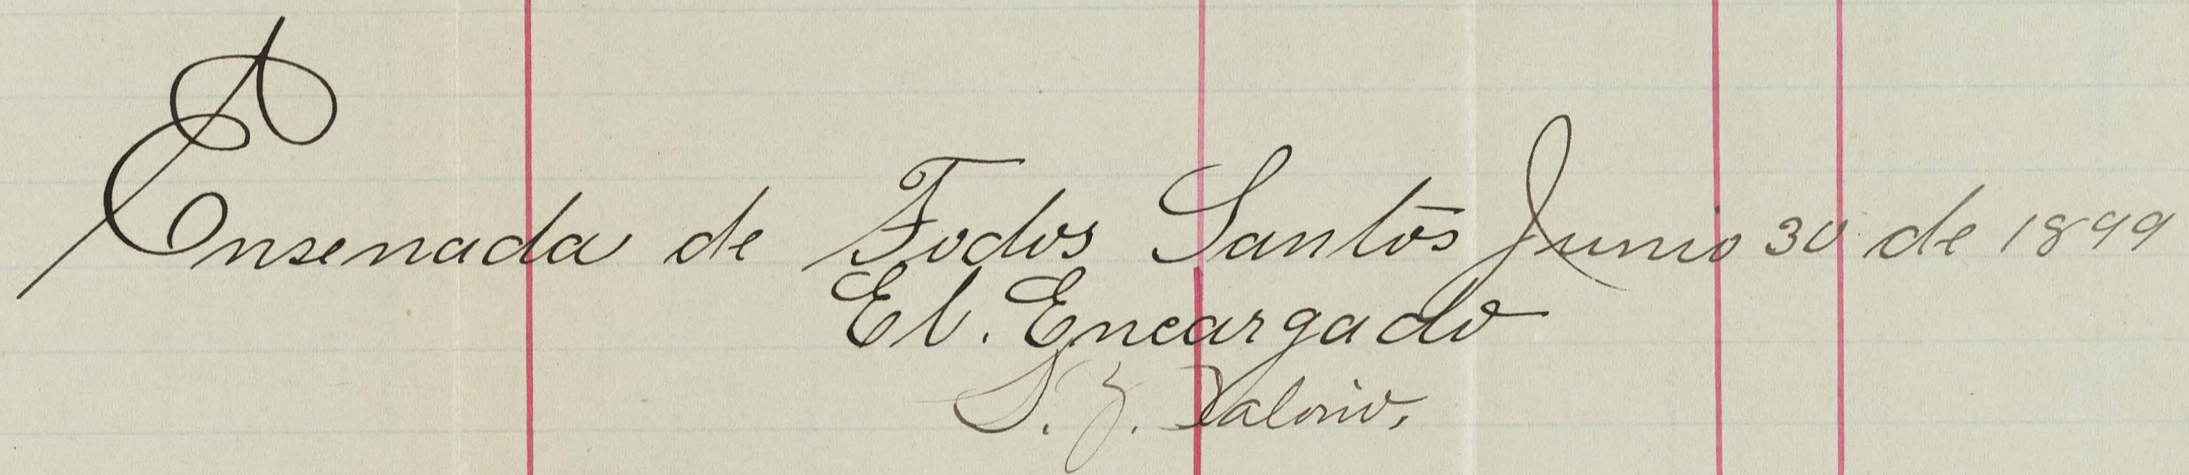 Ensenada de Todos Santos Junio 30 de 1899
El. Encargado
S. Z.